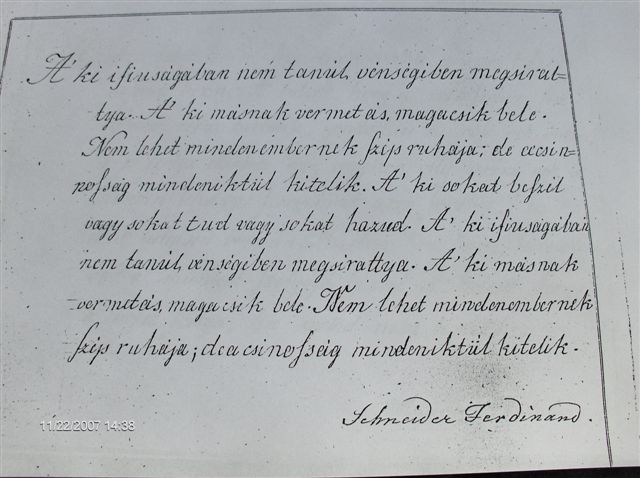 A' ki ifiuságában nem tanúl, vénségiben megsirat=
tya. A' ki másnak vermet ás, maga csik bele.
Nem lehet mindenembernek szip ruhája; de a csin=
nosság mindeniktül kitelik. A' ki sokat beszil
vagy sokat tud vagy sokat hazud. A' ki ifiuságában
nem tanúl, vénségiben megsirattya. A' ki másnak
vermet ás, maga csik bele. Nem lehet mindenembernek
szip ruhája; de a csinosság mindeniktül kitelik.
Schneider Ferdinand.
11/22/2007 14:38